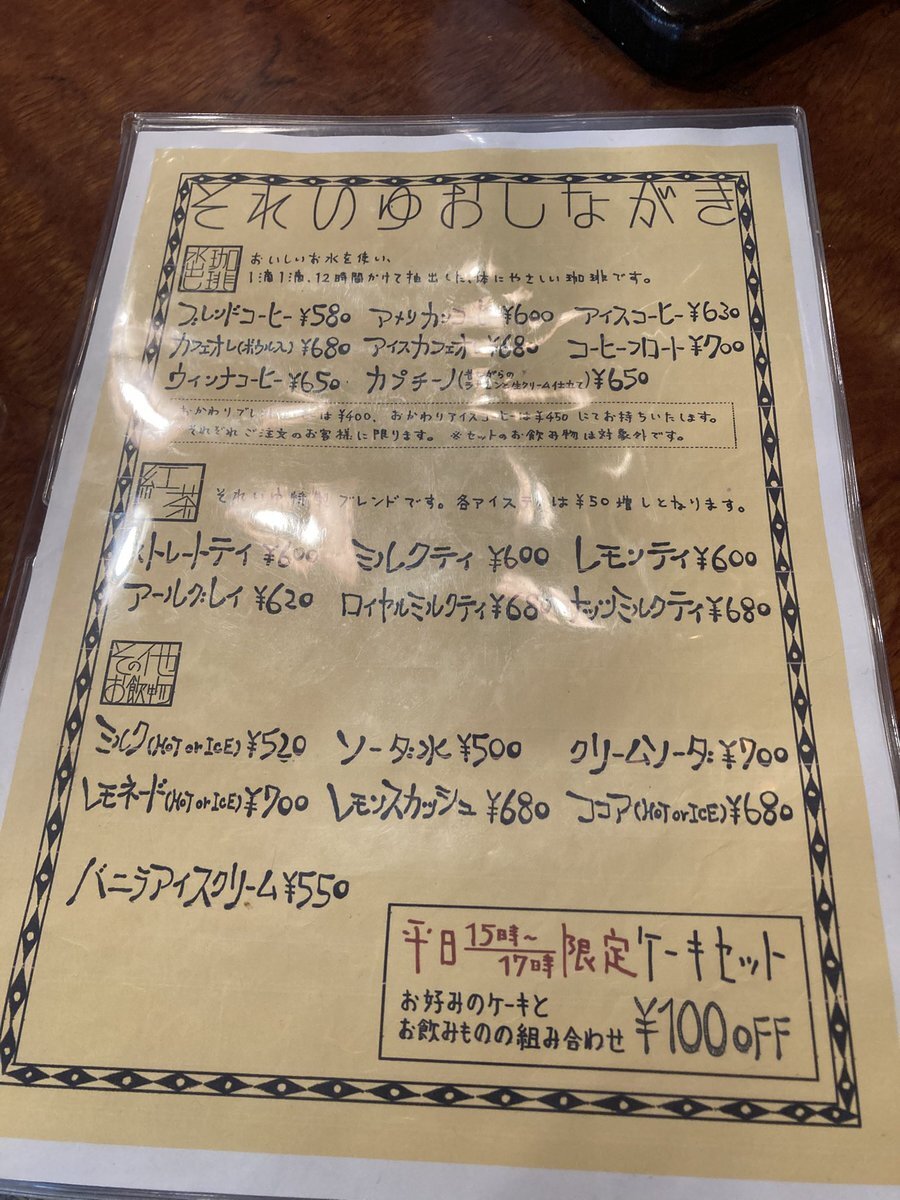 それいゆおしながき
水出し珈琲
おいしいお水を使い、
1滴1滴、12時間かけて抽出した、体にやさしい珈琲です。
ブレンドコーヒー¥580 アメリカンコーヒー¥600 アイスコーヒー¥630
カフェオレ(ボウルス)¥680 アイスカフェオ ¥680 コーヒーフロート¥700
ウィンナコーヒー¥650 カプチーノ( 生クリーム仕立て)¥650
おかわりブレンド は¥400、おかわりアイスコーヒーは¥450にてお持ちいたします。
それぞれご注文のお客様に限ります。 ※セットのお飲み物は対象外です。
紅茶
それいゆ特製ブレンドです。各アイスティは¥50増しとなります。
ストレートティ¥600 ミルクティ¥600 レモンティ¥600
アールグレイ¥620 ロイヤルミルクティ¥680 ナッツミルクティ¥680
その他お飲物
ミルク(HOT or ICE)¥520 ソーダ水¥500 クリームソーダ¥700
レモネード(HOT or ICE)¥700 レモンスカッシュ¥680 ココア(HOT or ICE)¥680
バニラアイスクリーム¥550
平日15時〜17時限定ケーキセット
お好みのケーキと
お飲みものの組み合わせ ¥100OFF